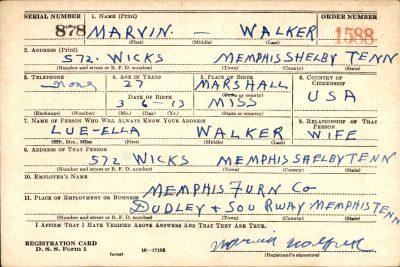 SERIAL NUMBER 1. NAME (Print) ORDER NUMBER
878 MARVIN. - WALKER 1588
(First) (Middle) (Last)
2. ADDRESS (Print)
572. WICKS MEMPHIS SHELBY TENN
(Number and street or R. F. D. number) (Town) (County) (State)
3. TELEPHONE 4. AGE IN YEARS 5. PLACE OF BIRTH 6. COUNTRY OF CITIZENSHIP
none 27 MARSHALL
DATE OF BIRTH (Town or county) USA
3-6-13 MISS
(Exchange) (Number) (Mo.) (Day) (Yr.) (State or country)
7. NAME OF PERSON WHO WILL ALWAYS KNOW YOUR ADDRESS 8. RELATIONSHIP OF THAT PERSON
LUE-ELLA WALKER WIFE
(Mr., Mrs., Miss) (First) (Middle) (Last)
9. ADDRESS OF THAT PERSON
572 WICKS MEMPHIS SHELBY TENN
(Number and street or R. F. D. number) (Town) (County) (State)
10. EMPLOYER'S NAME
MEMPHIS FURN CO
11. PLACE OF EMPLOYMENT OR BUSINESS
DUDLEY + SOU RWAY MEMPHIS TENN
(Number and street or R. F. D. number) (Town) (County) (State)
I AFFIRM THAT I HAVE VERIFIED ABOVE ANSWERS AND THAT THEY ARE TRUE.
REGISTRATION CARD
D. S. S. Form 1 (over) 16-17105 (Registrant's signature)